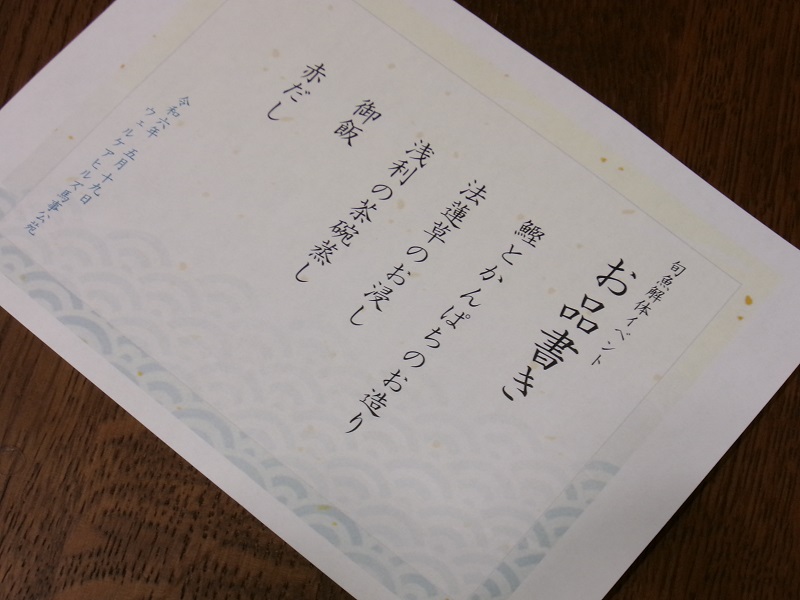 旬魚解体イベント
お品書き
鰹とかんぱちのお造り
法蓮草のお浸し
浅利の茶碗蒸し
御飯
赤だし
令和六年 五月十九日
ウェルケアヒルズ馬事公苑